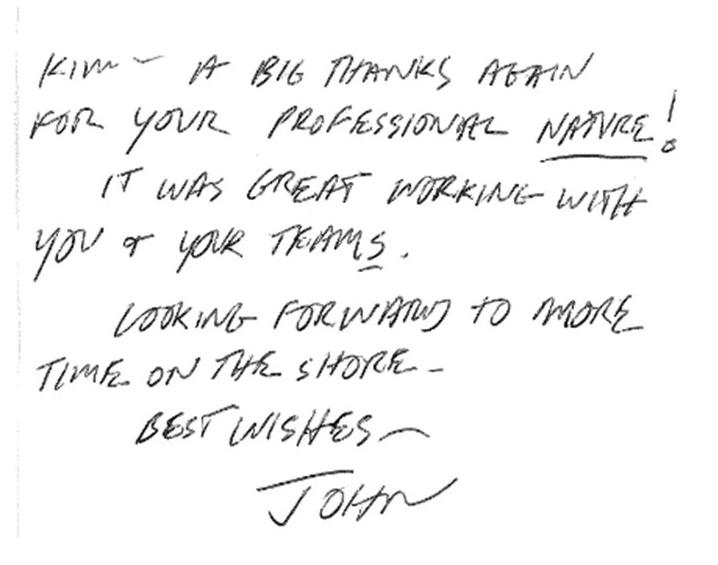 KIM - A BIG THANKS AGAIN
FOR YOUR PROFESSIONAL NATURE!
IT WAS GREAT WORKING WITH
YOU & YOUR TEAMS.
LOOKING FORWARD TO MORE
TIME ON THE SHORE -
BEST WISHES -
JOHN